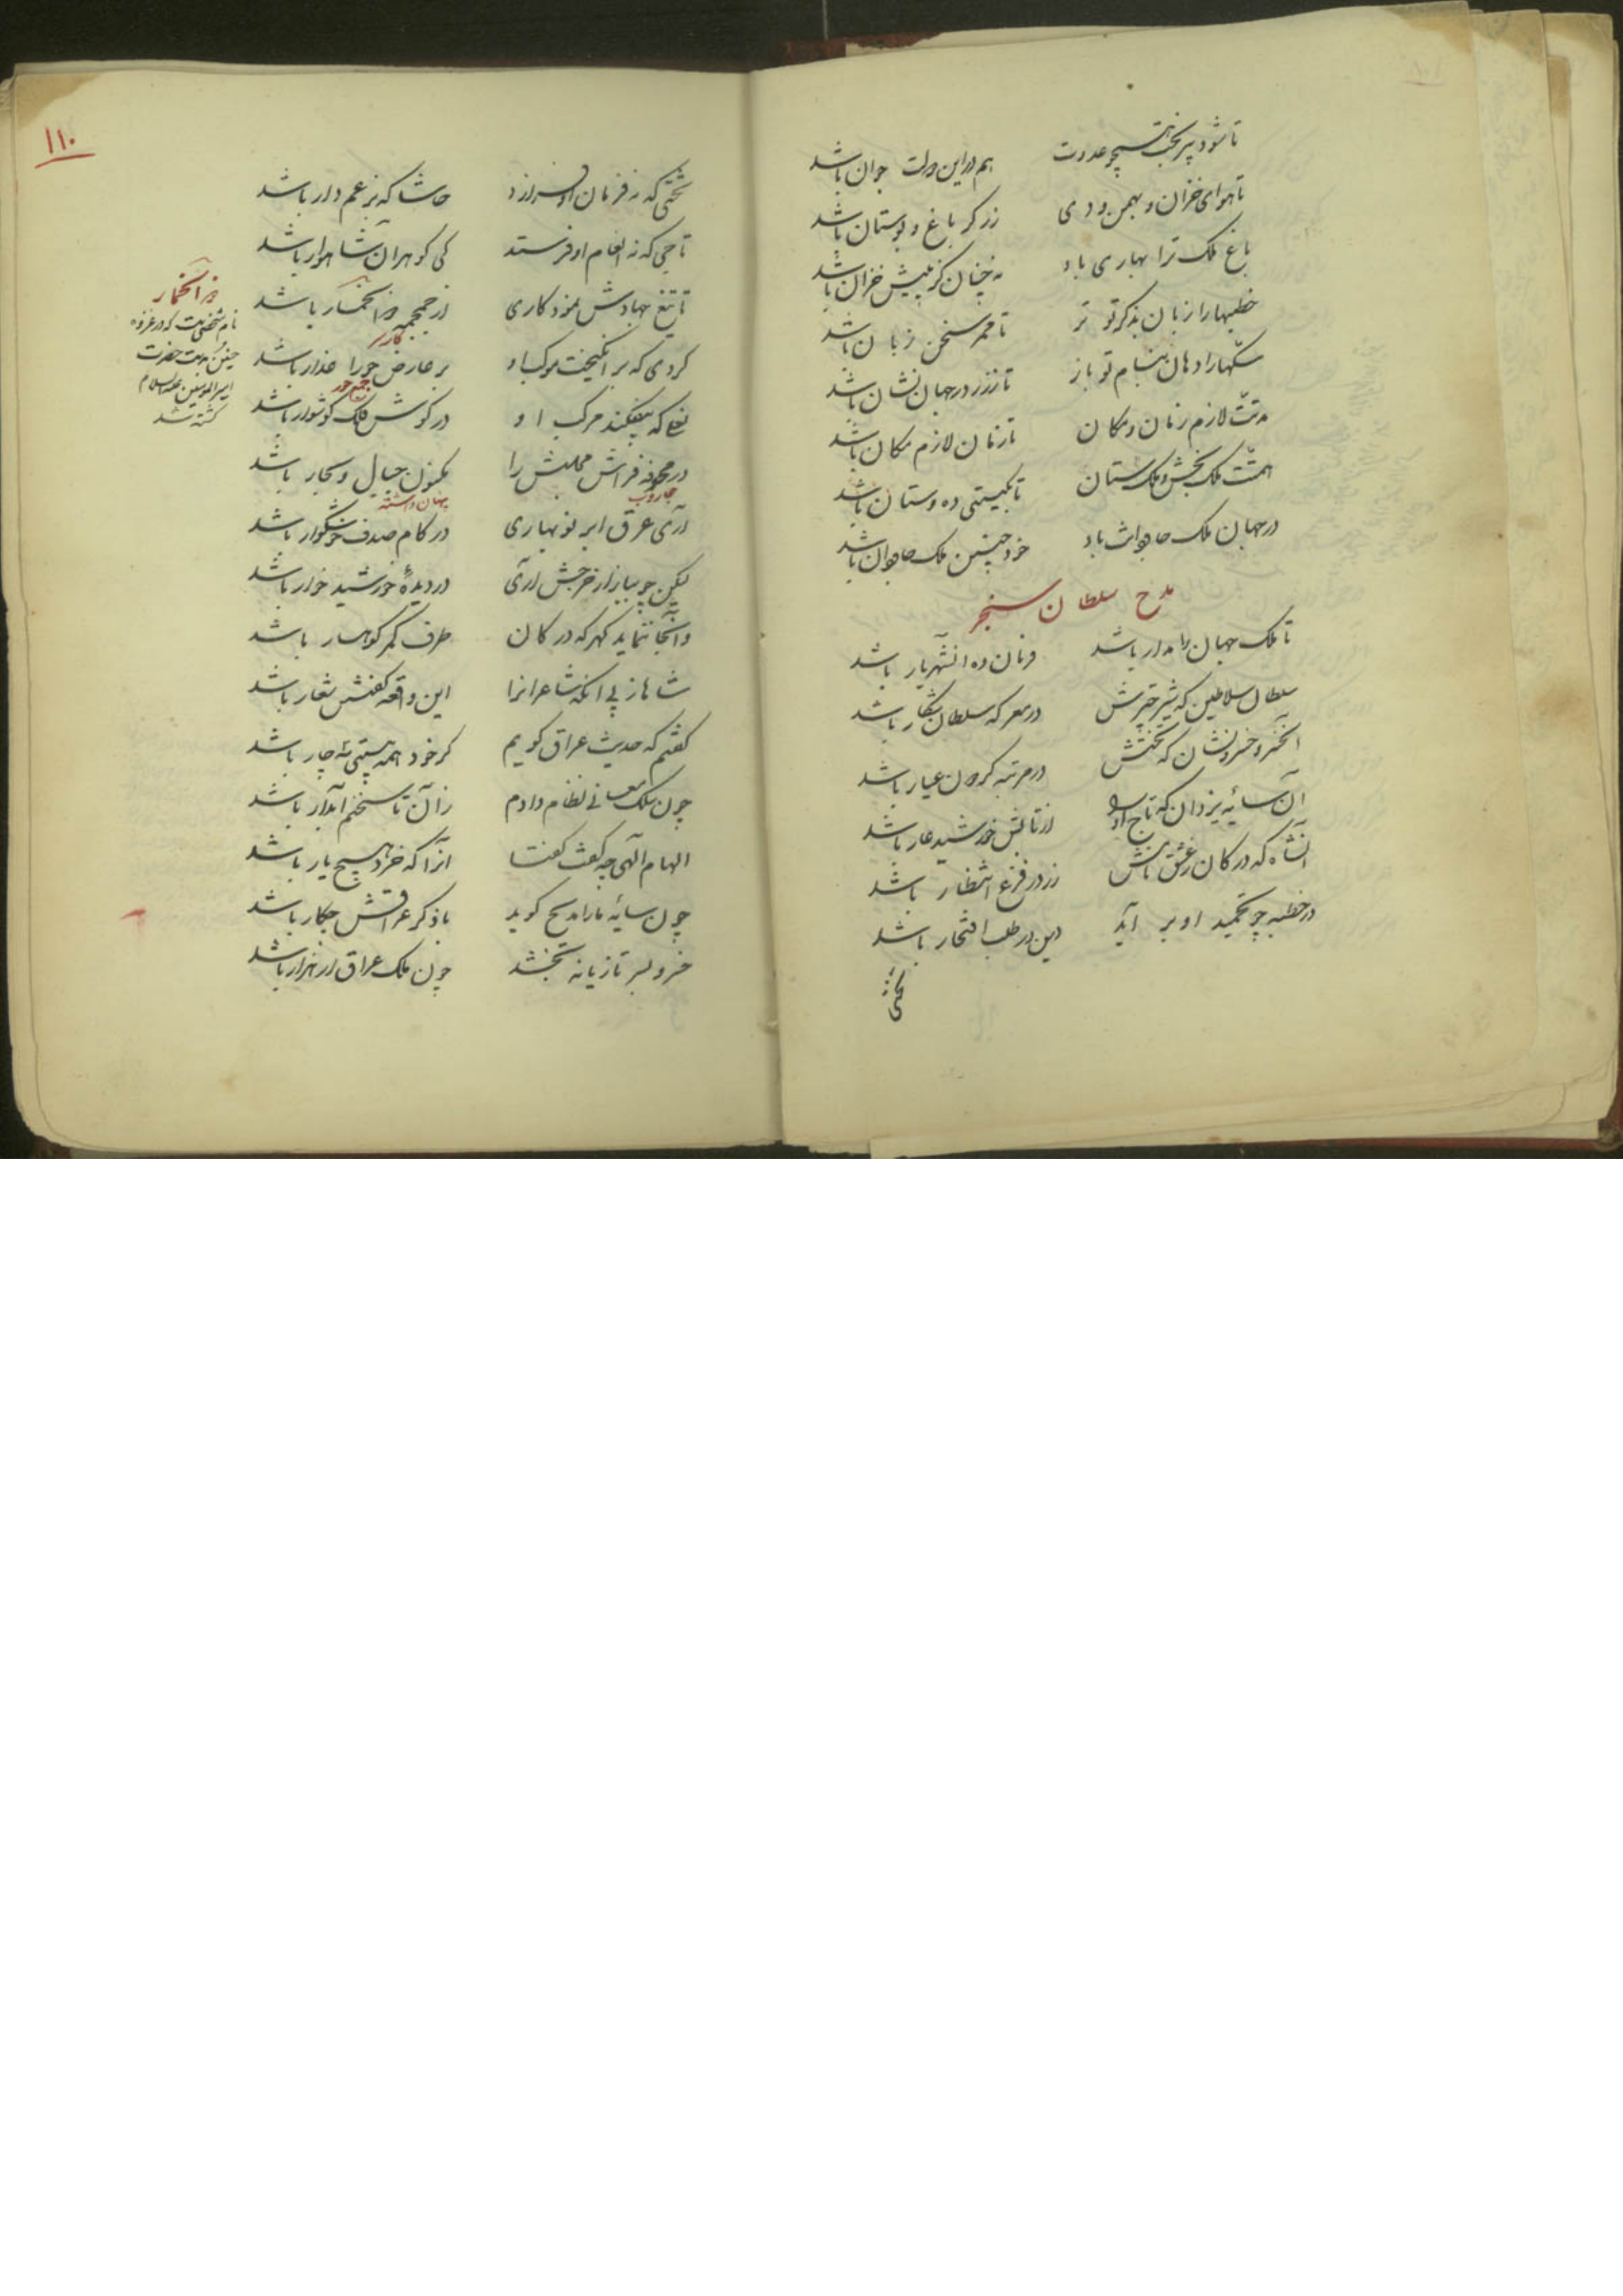 تا شود پیر همچو بخت عدوت هم در این دولت جوان باشد
تا هوای خزان و بهمن و دی زرگر باغ و بوستان باشد
باغ ملک ترا بهاری باد نه چنان کز پیش خزان باشد
خطبها را زبان بذکر تو تر تا ممر سخن زبان باشد
سکّها را دهان بنام تو باز تا ز زر در جهان نشان باشد
مدّت لازم زمان و مکان تا زمان لازم مکان باشد
همّت ملک بخش و ملک ستان تا بگیتی ده و ستان باشد
در جهان ملک جاودانت باد خود چنین ملک جاودان باشد
مدح سلطان سنجر
تا ملک جهان را مدار باشد فرمان ده آنشهریار باشد
سلطان سلاطین که شیر چترش در معرکه سلطان شکار باشد
آنخسرو خسرونشان که تختش در مرتبه گردون عیار باشد
آن سایه یزدان که تاج او را از تابش خورشید عار باشد
آنشاه که در کان ز عشق نامش زر در فزع انتظار باشد
در خطبه چو تحمید او بر آید دین در طلب افتخار باشد
تختی
۱۱۰
تختی که نه فرمان او فرازد حاشا که نه بر عجم دار باشد
تاجی که نه انعام او فرستد کی گوهر آن شاهوار باشد
تا تیغ جهادش نمود کاری از جمجمه ذو الخمار باشد
گردی که بر انگیخت موکب او بر عارض حورا عذار باشد
نعلی که بیفکند مرکب او در گوش فلک گوشوار باشد
در مجرفه فراش مجلسش را مکنون جبال و بحار باشد
جاروب
پنهان داشته
آری عرق ابر نوبهاری در کام صدف خوشگوار باشد
لیکن چو ببازار خرجش آری در دیدهٔ خورشید خوار باشد
و آنجا ننماید گهر که در کان طرف کمر کوهسار باشد
شاها ز پی آنکه شاعرانرا این واقعه گفتن شعار باشد
گفتم که حدیث عراق گویم گر خود همه بیتی سه چار باشد
چون سلک معانی نظام دادم زان تا سخنم آبدار باشد
الهام الهی چه گفت گفتا آنرا که خرد هیچ یار باشد
چون سایهٔ ما را مدیح گوید با ذکر عراقش چکار باشد
خسرو بسر تازیانه بخشد چون ملک عراق ار هزار باشد
ذو الخمار
نام شخصیست که در غزوه
حنین بدست حضرت
امیر المومنین علیه السلام
کشته شد